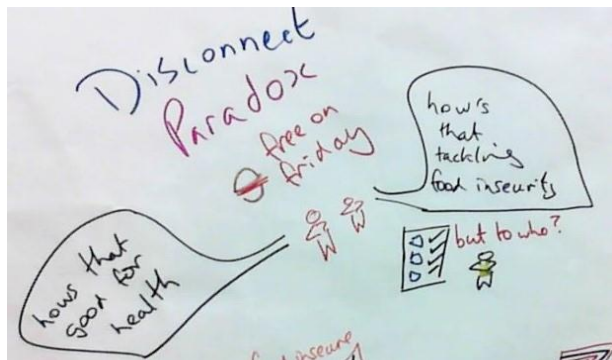 Disconnect
Paradox
free on
friday
how's
that
tackling
food insecurity
but to who?
hows that
good for
health
food insecure